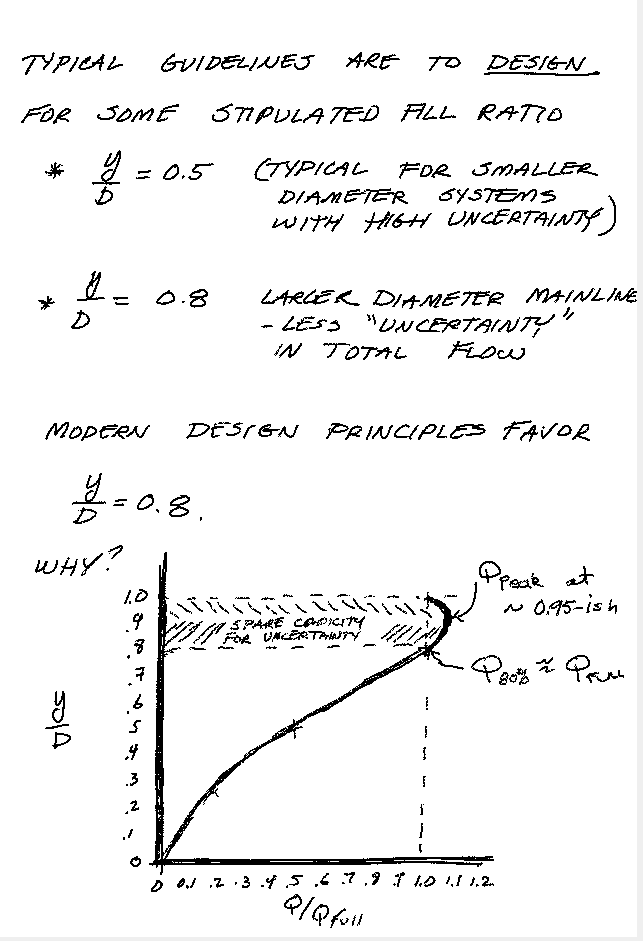 TYPICAL GUIDELINES ARE TO DESIGN
FOR SOME STIPULATED FILL RATIO
* y/D = 0.5 (TYPICAL FOR SMALLER
DIAMETER SYSTEMS
WITH HIGH UNCERTAINTY)
* y/D = 0.8 LARGER DIAMETER MAINLINE
- LESS "UNCERTAINTY"
IN TOTAL FLOW
MODERN DESIGN PRINCIPLES FAVOR
y/D = 0.8.
WHY?
Qpeak at
~ 0.95-ish
SPARE CAPICITY
FOR UNCERTAINTY
Q80% ≈ QFULL
y/D
1.0
.9
.8
.7
.6
.5
.4
.3
.2
.1
0
0 0.1 .2 .3 .4 .5 .6 .7 .8 .9 1.0 1.1 1.2
Q/Qfull